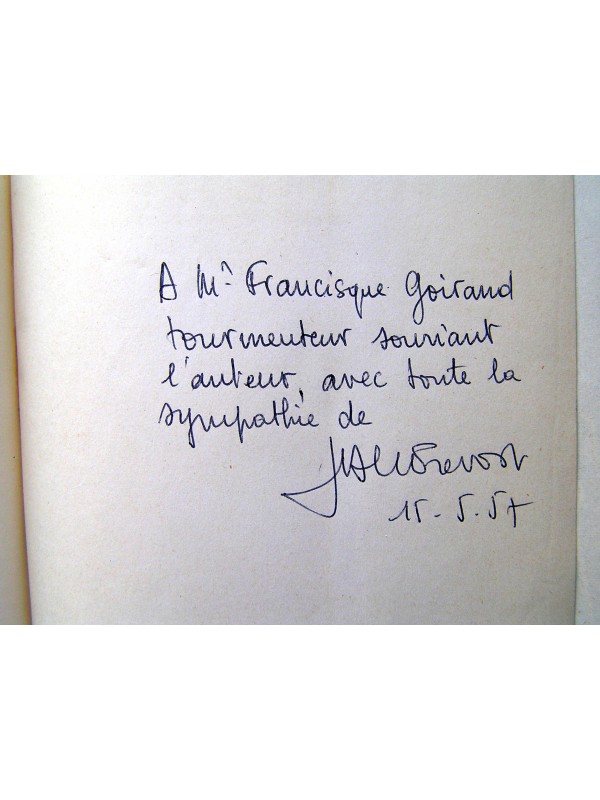 A Mr Francisque Goirand
tourmenteur souriant
l'auteur, avec toute la
sympathie de
15-5-57